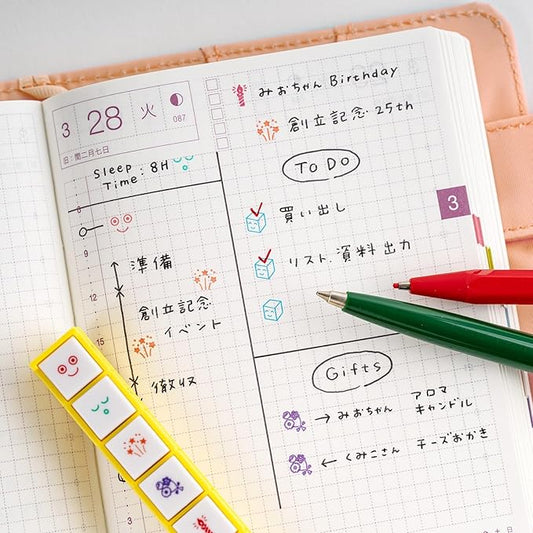 3 28 火 087
旧:閏二月七日
Sleep
Time : 8H
みおちゃん Birthday
創立記念 25th
To Do
買い出し
リスト、資料出力
3
6
9
準備
12
創立記念
イベント
15
撤収
Gifts
→ みおちゃん アロマ
キャンドル
← くみこさん チーズおかき